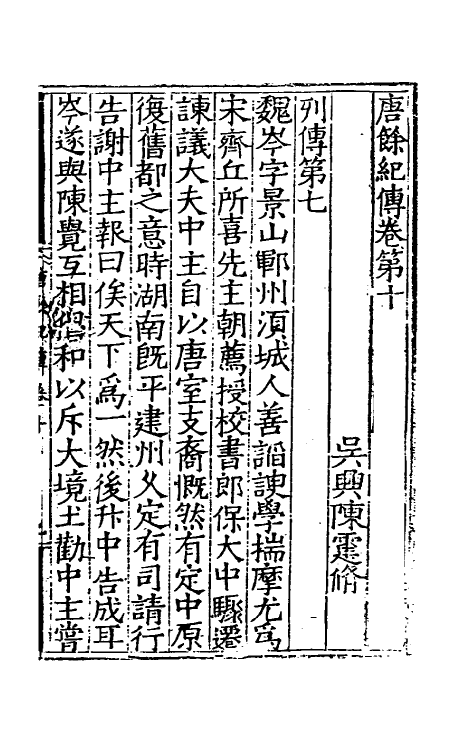 唐餘紀傳卷第十
吳興陳霆脩
列傳第七
魏岑字景山鄆州湏城人善謟諛學揣摩尤爲
宋齊丘所喜先主朝薦授校書郎保大中驟遷
諫議大夫中主自以唐室支裔慨然有定中原
復舊都之意時湖南旣平建州乆定有司請行
告謝中主報曰俟天下爲一然後升中告成耳
岑遂與陳覺互相倡和以斥大境土勸中主嘗